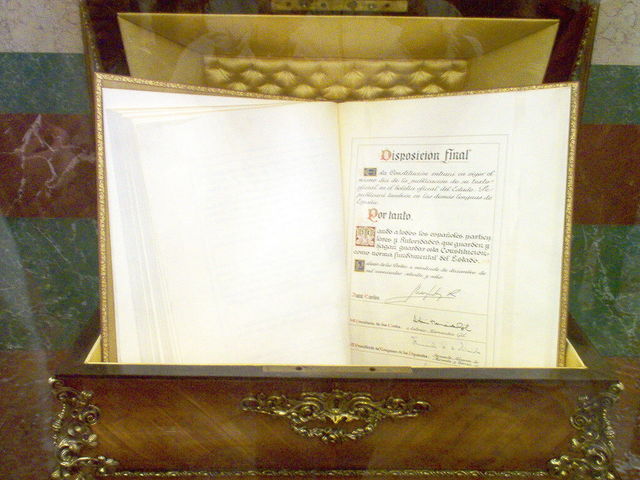 Disposicion final
Esta Constitucion entrara en vigor el
mismo dia de la publicacion de su texto
oficial en el boletin oficial del Estado. Se
publicará tambien en las demás lenguas de
España.
Por tanto,
Mando a todos los españoles particu
lares y Autoridades que guarden y
hagan guardar esta Constitucion
como norma fundamental del Estado.
Palacio de las Cortes a veintisiete de diciembre de
mil novecientos setenta y ocho.
Juan Carlos
Juan Carlos R
El Presidente de las Cortes
El Presidente del Congreso de los Diputados